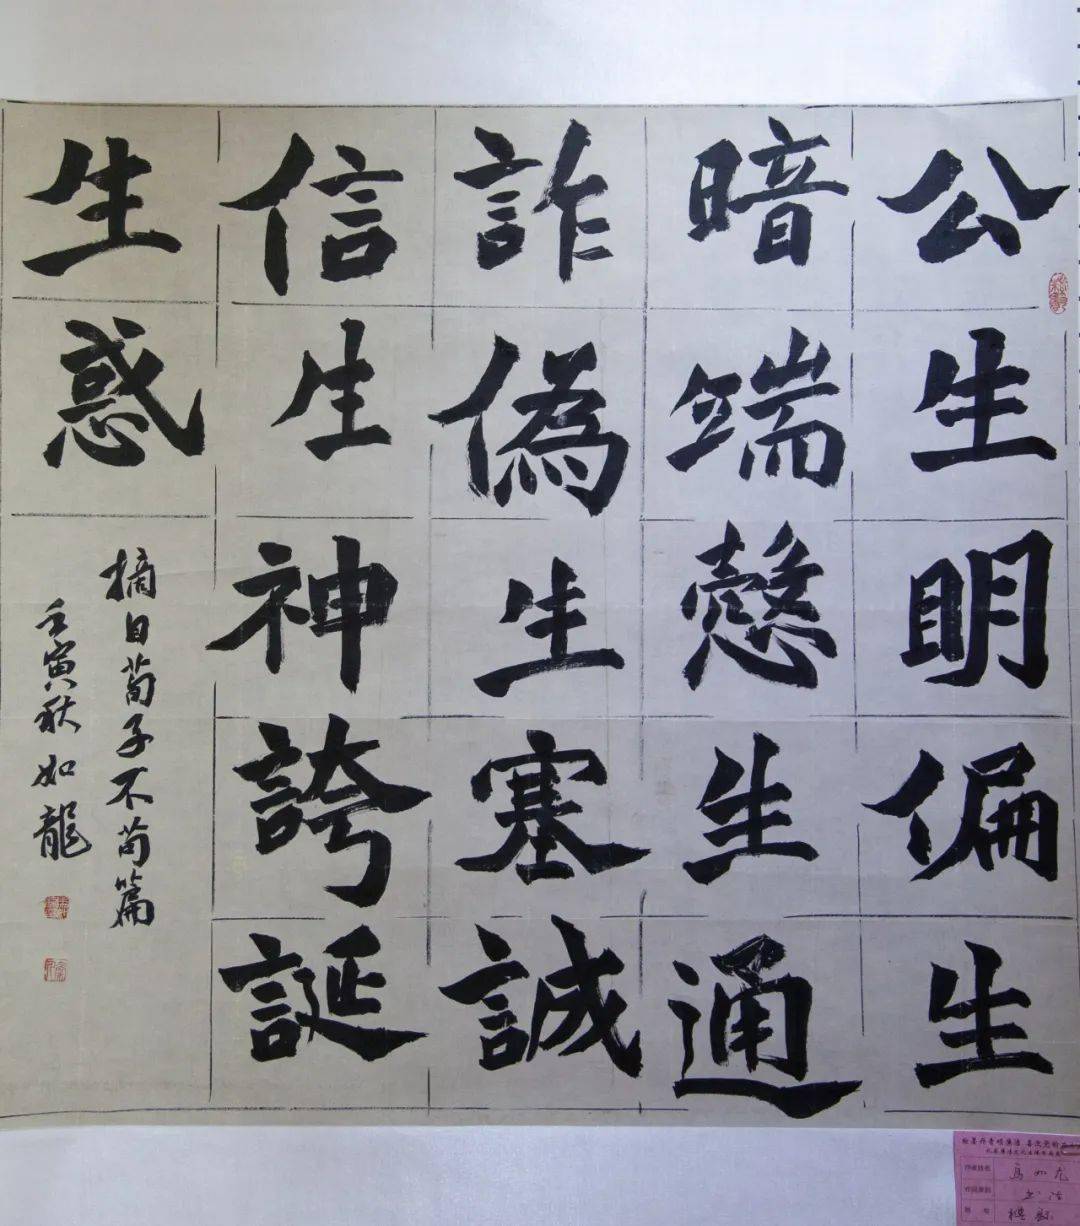 公生明偏生
暗端慤生通
詐偽生塞誠
信生神誇誕
生惑
摘自荀子不苟篇
壬寅秋如龍